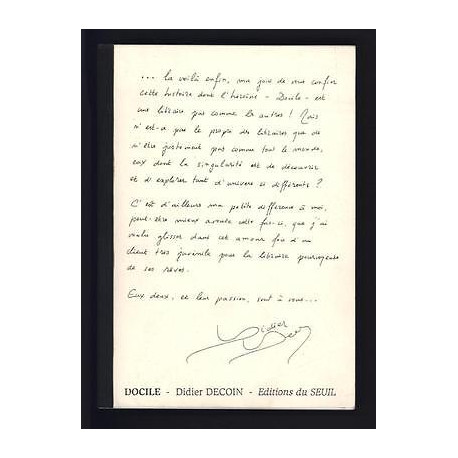 ... la voilà enfin, ma joie de vous confier
cette histoire dont l'héroïne - Docile - est
une libraire pas comme les autres ! Mais
n'est-ce pas le propre des libraires que de
n'être justement pas comme tout le monde,
eux dont la singularité est de découvrir
et d'explorer tant d'univers si différents ?
C'est d'ailleurs ma petite différence à moi,
peut-être mieux avouée cette fois-ci, que j'ai
voulu glisser dans cet amour fou d'un
client très juvénile pour la libraire
de ses rêves.
Eux deux, et leur passion, sont à vous...
Didier
Decoin
DOCILE - Didier DECOIN - Editions du SEUIL